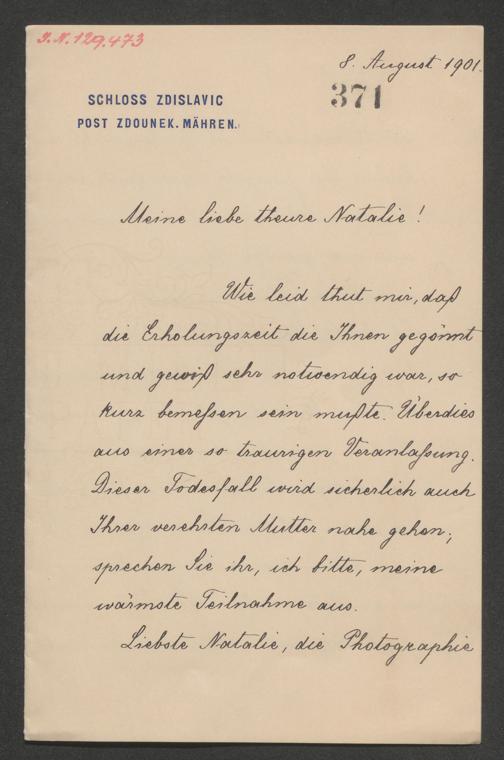 I.N.129.473
8. August 1901.
371
SCHLOSS ZDISLAVIC
POST ZDOUNEK. MÄHREN.
Meine liebe theure Natalie!
Wie leid thut mir, daß
die Erholungszeit die Ihnen gegönnt
und gewiß sehr notwendig war, so
kurz bemeßen sein mußte. Überdies
aus einer so traurigen Veranlaßung.
Dieser Todesfall wird sicherlich auch
Ihrer verehrten Mutter nahe gehen;
sprechen Sie ihr, ich bitte, meine
wärmste Teilnahme aus.
Liebste Natalie, die Photographie